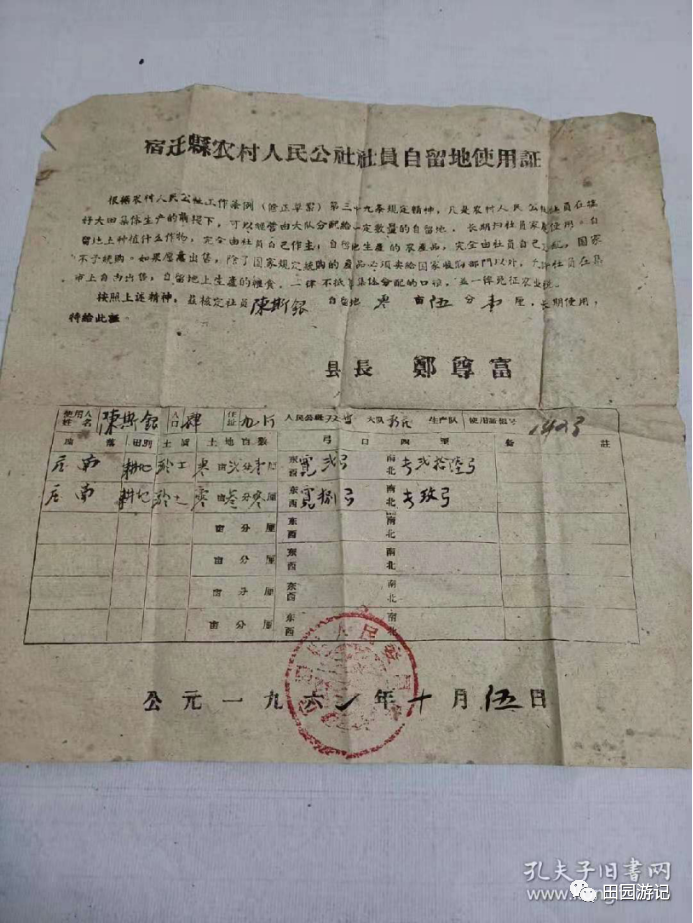 宿迁縣农村人民公社社員自留地使用証
根據农村人民公社工作条例（修正草案）第三十九条規定精神，凡是农村人民公社社員在搞
好大田集体生产的前提下，可以經营由大队分配給一定数量的自留地，长期归社員家庭使用。自
留地上种植什么作物，完全由社員自己作主，自留地生产的农产品，完全由社員自己支配，国家
不予統购。如果愿意出售，除了国家規定統购的产品必須卖給国家收购部門以外，允許社員在集
市上自由出售，自留地上生产的粮食，一律不抵集体分配的口粮，並一律免征农业税。
按照上述精神，茲核定社員陳斯銀 自留地 零 亩 伍 分 厘，长期使用，
特給此証
县長 鄭尊富
使用人姓名 陳斯銀 人口 肆 住址 人民公社 大队 生产队 使用証編号 1423
座落 田别 土質 土地亩数 弓口四至 备註
庄南 耕地 零 亩 分 厘 东西 寬 弓 南北 长 弍拾陸弓
庄南 耕地 零 亩 分 零 厘 东西 寬 捌弓 南北 长 玖弓
亩 分 厘 东西 南北
亩 分 厘 东西 南北
亩 分 厘 东西 南北
亩 分 厘 东西 南北
公元一九六 年十月伍日
孔夫子旧书网
田园游记